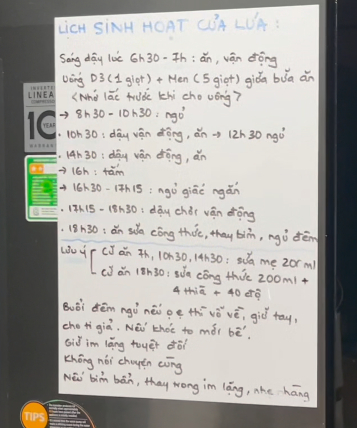 LỊCH SINH HOẠT CỦA LÚA :
Sáng dậy lúc 6h30 - 7h : ăn, vận động
Uống D3 (1 giọt) + Men (5 giọt) giữa bữa ăn
<Nhớ lắc trước khi cho uống>
→ 8h30 - 10h30 : ngủ
. 10h30 : dậy vận động, ăn → 12h30 ngủ
. 14h30 : dậy vận động, ăn
→ 16h : tắm
→ 16h30 - 17h15 : ngủ giấc ngắn
. 17h15 - 18h30 : dậy chơi vận động
. 18h30 : ăn sữa công thức, thay bỉm, ngủ đêm
Lưu ý
Cữ ăn 7h, 10h30, 14h30 : sữa mẹ 200ml
Cữ ăn 18h30 : sữa công thức 200ml +
4 thìa + 40 độ
Buổi đêm ngủ nếu ọ ẹ thì vỗ về, giữ tay,
cho ti giả. Nếu khóc to mới bế.
Giữ im lặng tuyệt đối
Không nói chuyện cùng
Nếu bỉm bẩn, thay trong im lặng, nhẹ nhàng
INVERTER
LINEA
COMPRESSOR
10
YEAR
TIPS